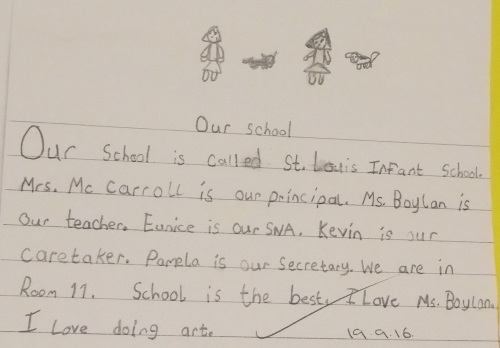 Our school
Our school is called St. Louis Infant School.
Mrs. Mc Carroll is our principal. Ms. Boylan is
our teacher. Eunice is our SNA. Kevin is our
caretaker. Pamela is our secretary. We are in
Room 11. School is the best. I Love Ms. Boylan.
I love doing art. 19.9.16